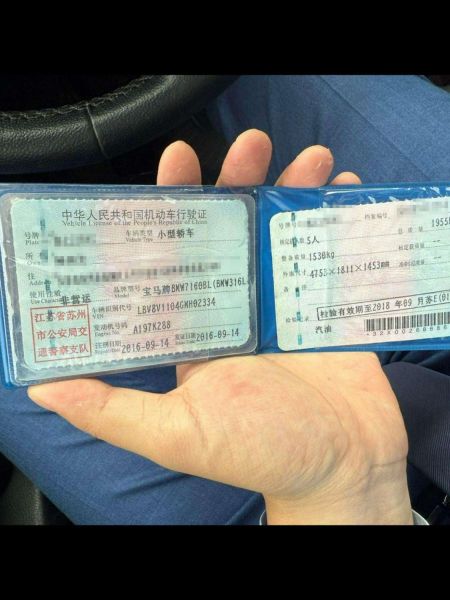 中华人民共和国机动车行驶证
Vehicle License of the People's Republic of China
号牌 车辆类型 小型轿车
Plate Vehicle Type
所
住
Address
使用性质 非营运 品牌型号 宝马牌BMW7160BL(BMW316L)
Use Character Model
江苏省苏州
市公安局交
通警察支队
车辆识别代号
VIN
发动机号码 A197K288
Engine No.
注册日期 2016-09-14 发证日期 2016-09-14
号牌 档案编号
5人 1955
整备质量 1530kg
4753×1811×1453mm
检验有效期至2018年09月苏E(01
汽油